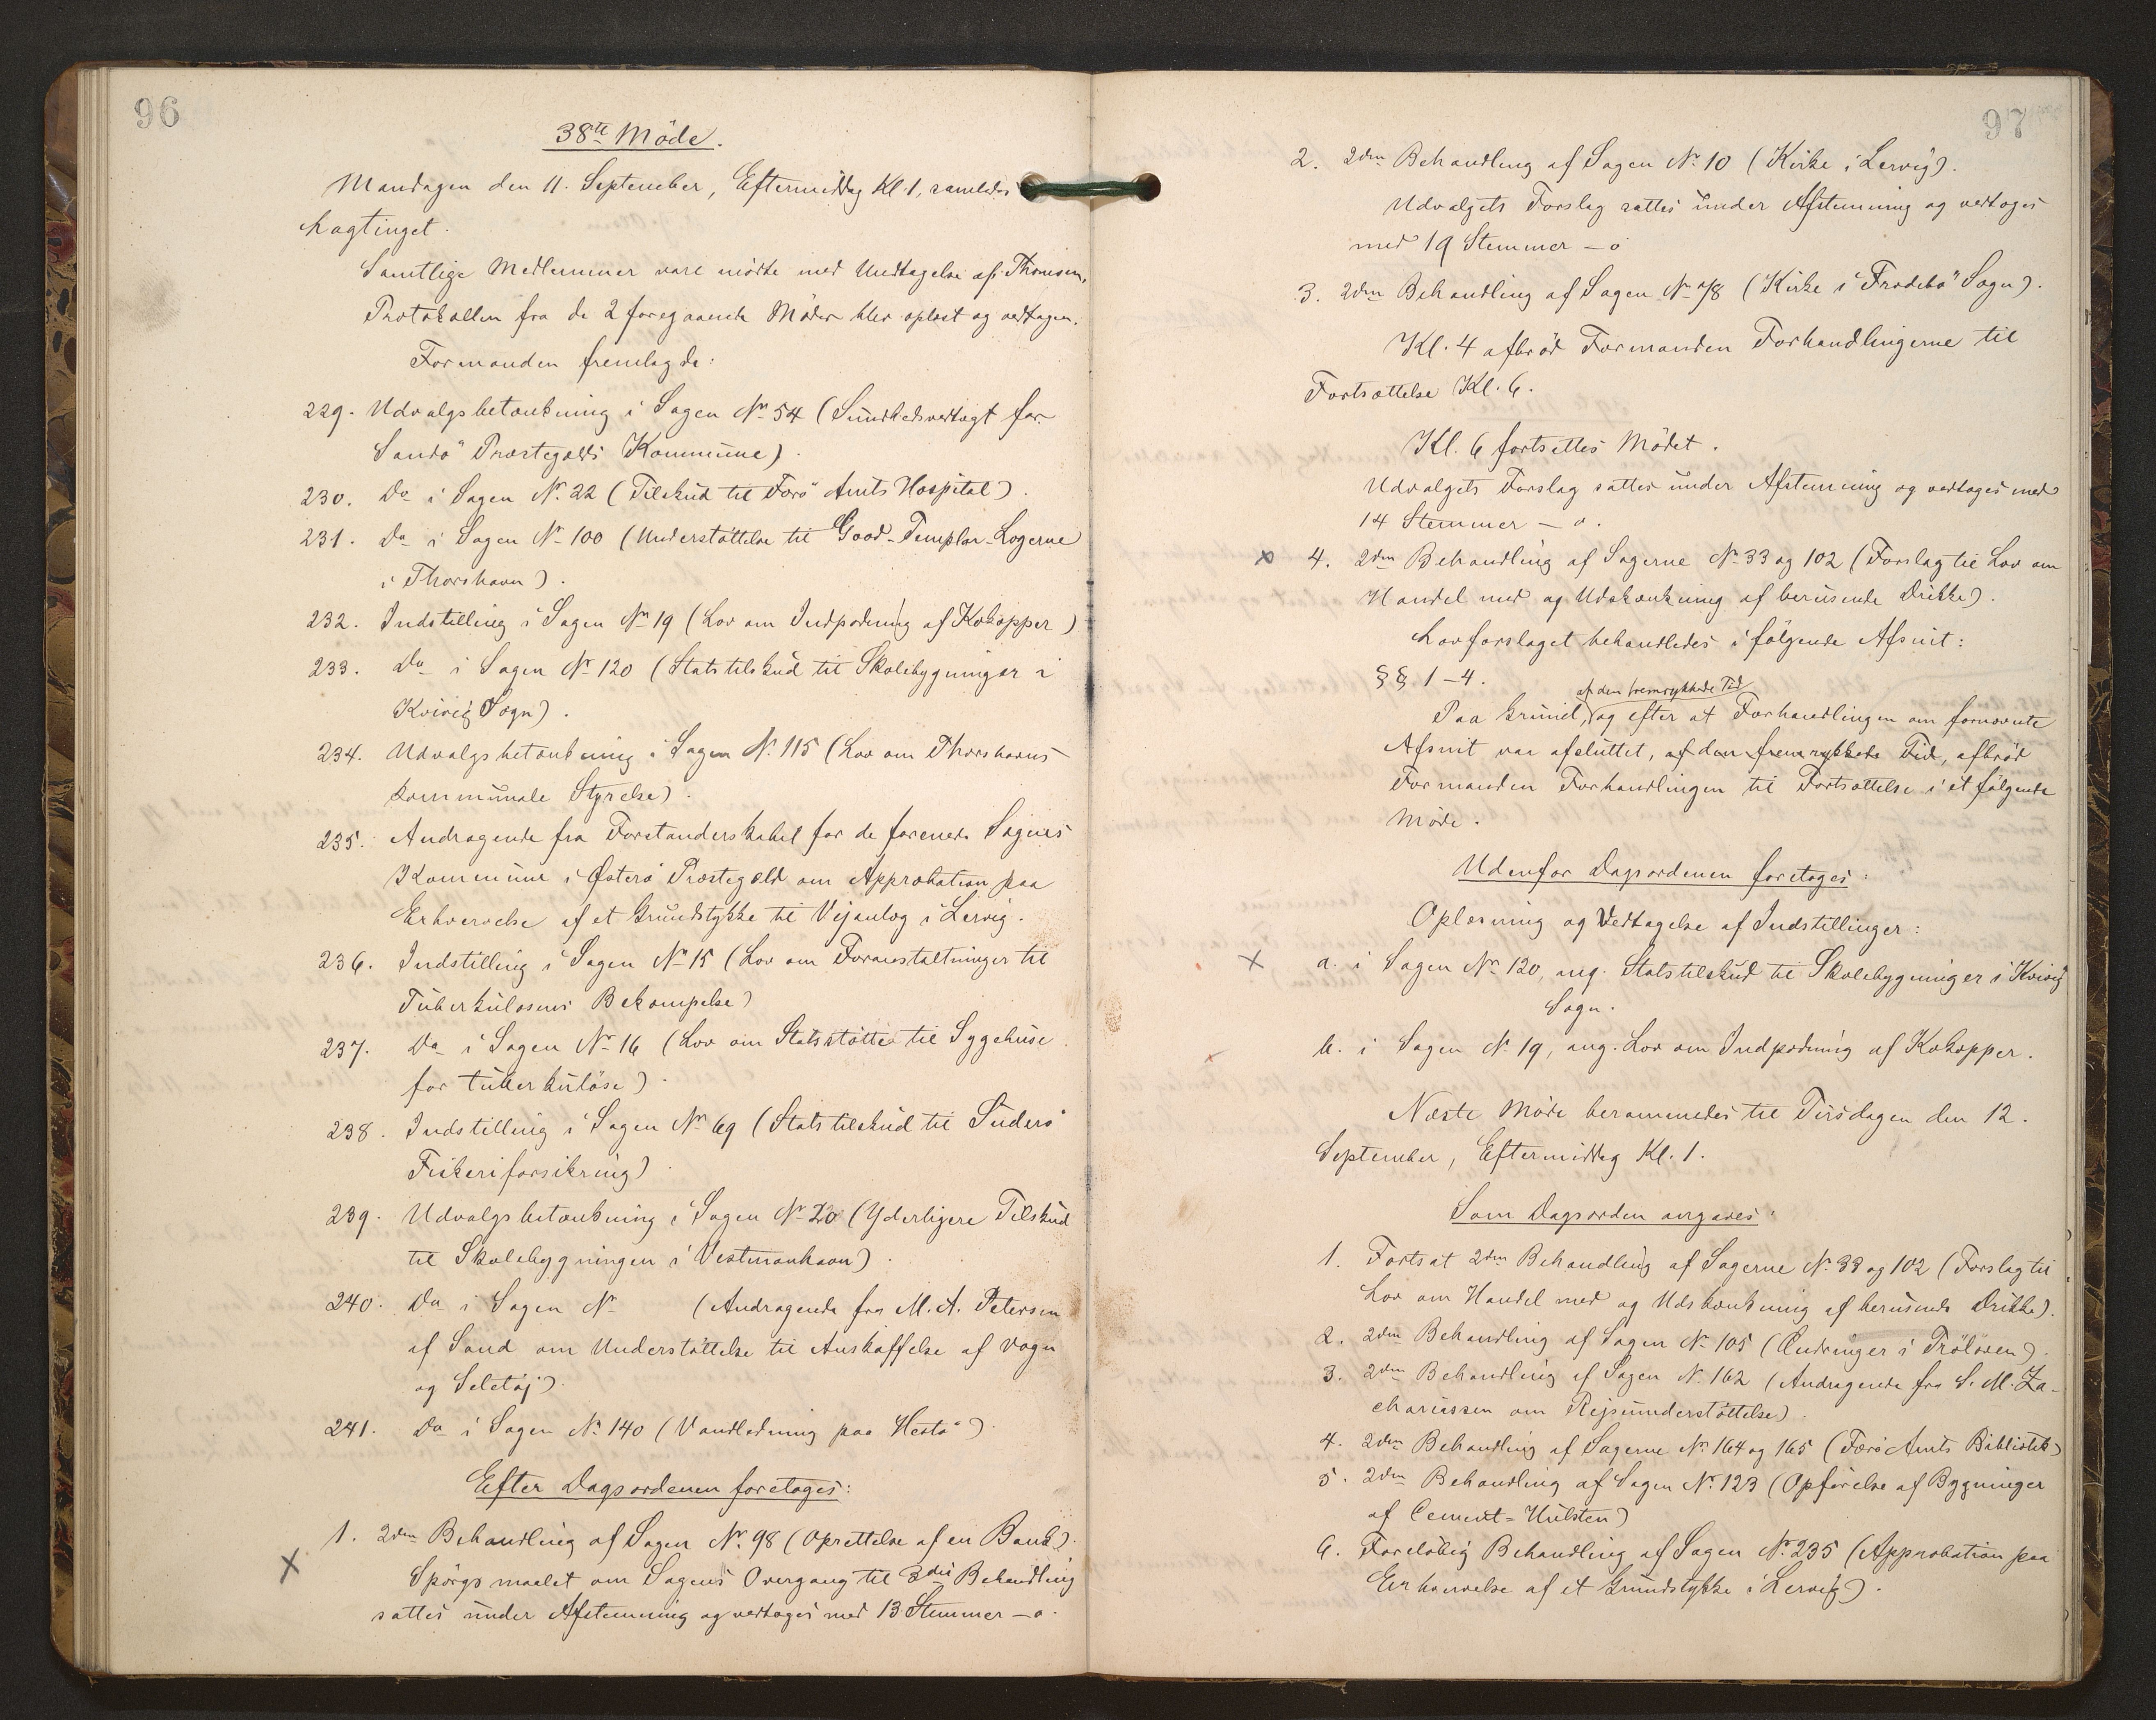 96
38te Møde.
Mandagen den 11. September, Eftermiddag Kl. 1, samledes
Lagtinget.
Samtlige Medlemmer vare mødte med Undtagelse af: Thomsen.
Protokollen fra de 2 foregaaende Møder blev oplæst og vedtagen.
Formanden fremlagde:
229. Udvalgsbetænkning i Sagen Nr 54 (Sundhedsvedtægt for
Sandø Præstegælds Kommune).
230. Do i Sagen Nr. 22 (Tilskud til Færø Amts Hospital).
231. Do i Sagen Nr 100 (Understøttelse til Good-Templar-Logerne
i Thorshavn).
232. Indstilling i Sagen Nr 19 (Lov om Indpodning af Kokopper)
233. Do i Sagen Nr 120 (Statstilskud til Skolebygninger i
Kvivig Sogn).
234. Udvalgsbetænkning i Sagen Nr. 115 (Lov om Thorshavns
kommunale Styrelse).
235. Andragende fra Forstanderskabet for de forenede Sognes
Kommune i Østerø Præstegæld om Approbation paa
Erhvervelse af et Grundstykke til Vejanlæg i Lervig.
236. Indstilling i Sagen Nr 15 (Lov om Foranstaltninger til
Tuberkulosens Bekæmpelse)
237. Do i Sagen Nr 16 (Lov om Statsstøtte til Sygehuse
for tuberkuløse).
238. Indstilling i Sagen Nr 69 (Statstilskud til Suderø
Fiskeriforsikring)
239. Udvalgsbetænkning i Sagen Nr 20 (Yderligere Tilskud
til Skolebygningen i Vestmanhavn).
240. Do i Sagen Nr (Andragende fra M. A. Petersen
af Sand om Understøttelse til Anskaffelse af Vogn
og Seletøj).
241. Do i Sagen Nr 140 (Vandledning paa Hestø).
Efter Dagsordenen foretoges:
X 1. 2den Behandling af Sagen Nr. 98 (Oprettelse af en Bank).
Spørgsmaalet om Sagens Overgang til 3die Behandling
sattes under Afstemning og vedtoges med 13 Stemmer – o.
97
2. 2den Behandling af Sagen Nr 10 (Kirke i Lervig).
Udvalgets Forslag sattes under Afstemning og vedtoges
med 19 Stemmer – o
3. 2den Behandling af Sagen Nr 78 (Kirke i Frodebø Sogn).
Kl. 4 afbrød Formanden Forhandlingerne til
Fortsættelse Kl. 6.
Kl. 6 fortsattes Mødet.
Udvalgets Forslag sattes under Afstemning og vedtoges med
14 Stemmer – o.
x 4. 2den Behandling af Sagerne Nr 33 og 102 (Forslag til Lov om
Handel med og Udskænkning af berusende Drikke).
Lovforslaget behandledes i følgende Afsnit:
§§ 1–4.
af den fremrykkede Tid
Paa Grund, og efter at Forhandlingen om fornævnte
Afsnit var afsluttet, af den fremrykkede Tid, afbrød
Formanden Forhandlingen til Fortsættelse i et følgende
Møde.
Udenfor Dagsordenen foretoges:
Oplæsning og Vedtagelse af Indstillinger:
X a. i Sagen Nr 120, ang. Statstilskud til Skolebygninger i Kvivig
Sogn.
b. i Sagen Nr 19, ang. Lov om Indpodning af Kokopper.
Næste Møde berammedes til Tirsdagen den 12.
September, Eftermiddag Kl. 1.
Som Dagsorden angaves:
1. Fortsat 2den Behandling af Sagerne Nr. 33 og 102 (Forslag til
Lov om Handel med og Udskænkning af berusende Drikke).
2. 2den Behandling af Sagen Nr 105 (Ændringer i Trøloven).
3. 2den Behandling af Sagen Nr. 162 (Andragende fra S. M. Za-
chariassen om Rejseunderstøttelse).
4. 2den Behandling af Sagerne Nr 164 og 165 (Færø Amts Bibliotek)
5. 2den Behandling af Sagen Nr. 123 (Opførelse af Bygninger
af Cement-Hulsten)
6. Foreløbig Behandling af Sagen Nr. 235 (Approbation paa
Erhvervelse af et Grundstykke i Lervig).